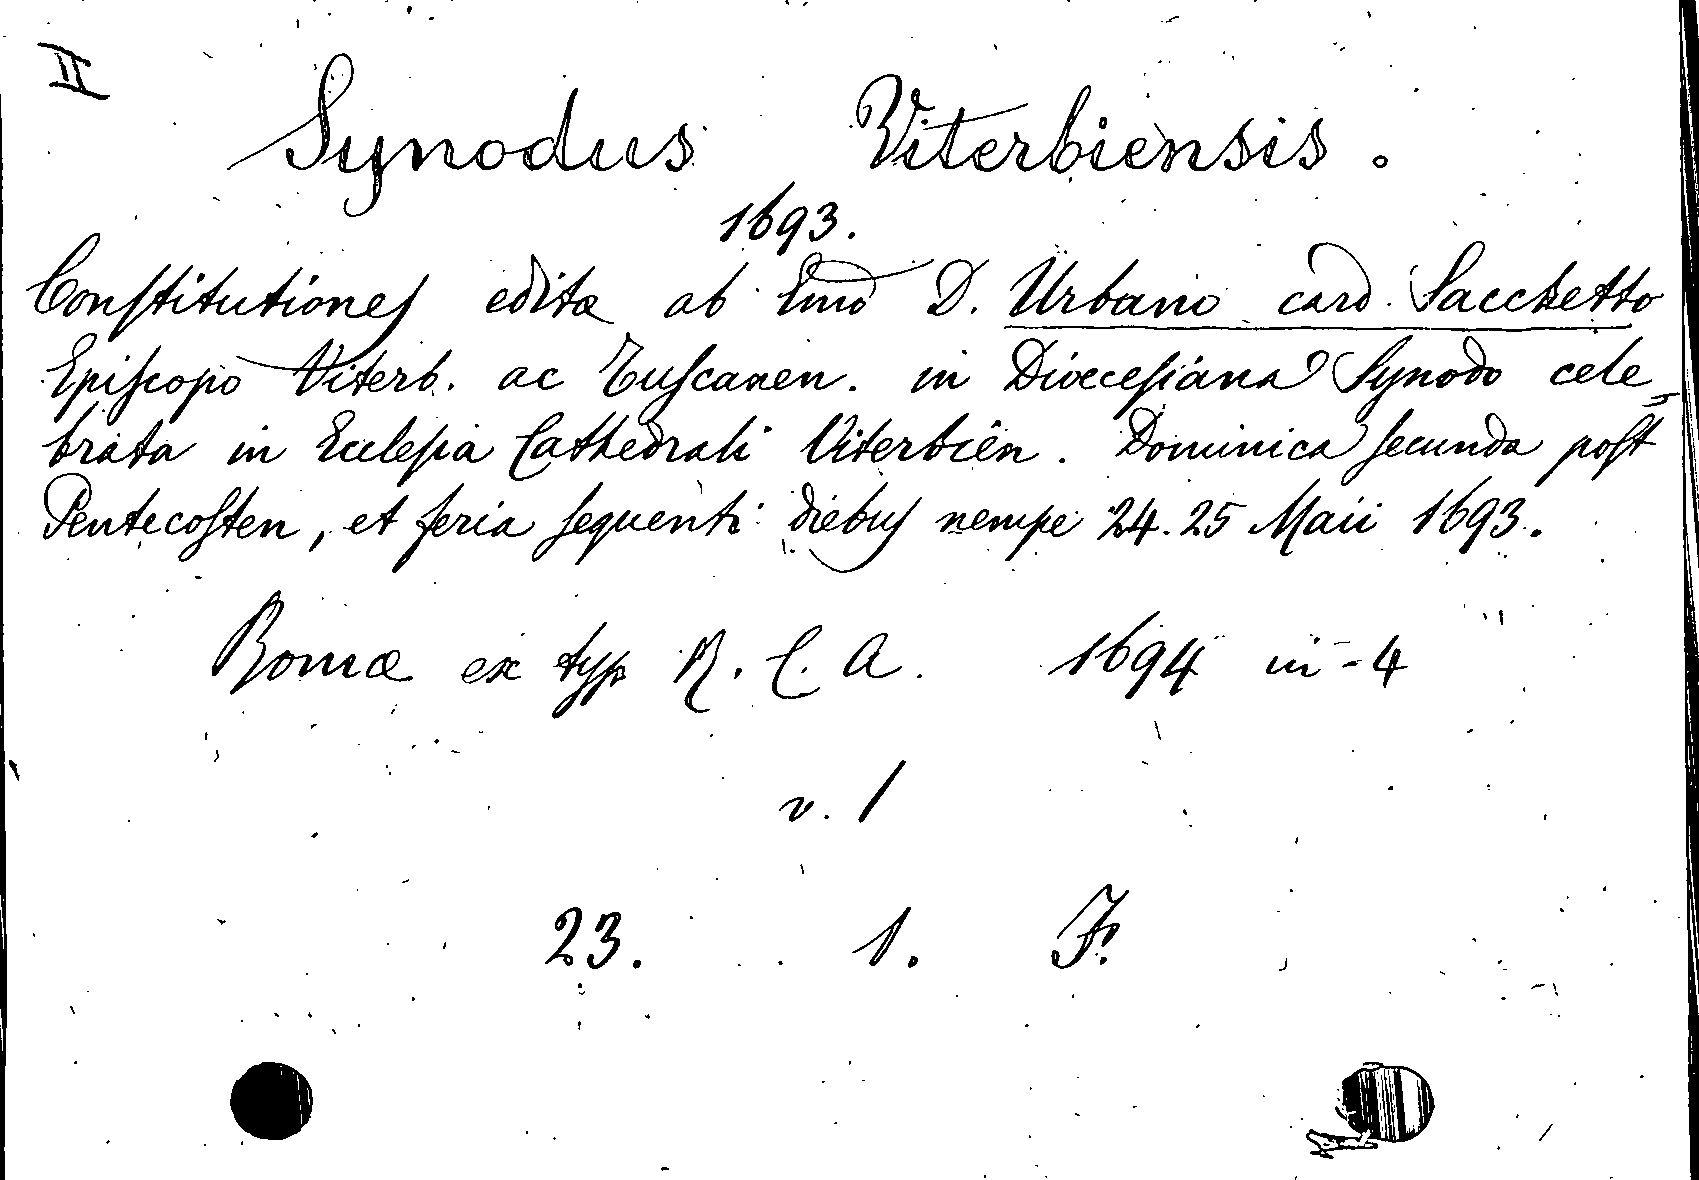 II
Synodus Viterbiensis.
1693.
Conſtitutiones editæ ab Emo D. Urbano card. Sacchetto
Epiſcopo Viterb. ac Tuſcanen. in Diœceſiana Synodo cele-
brata in Eccleſia Cathedrali Viterbiên. Dominica ſecunda poſt
Pentecoſten, et feria ſequenti diebus nempe 24. 25 Maii 1693.
Romæ ex typ R. C. A. 1694 in-4
v. 1
23. 1. F.